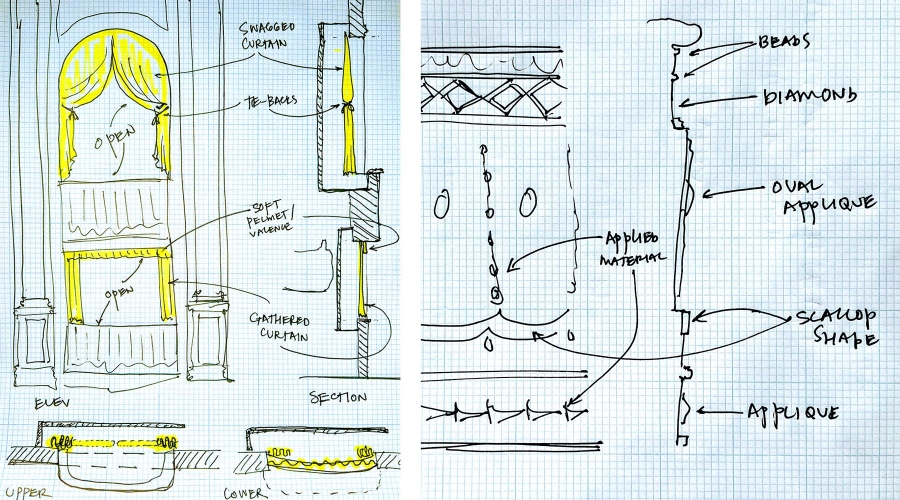 SWAGGED
CURTAIN
TIE-BACKS
OPEN
SOFT
PELMET/
VALENCE
OPEN
GATHERED
CURTAIN
ELEV
SECTION
UPPER
LOWER
BEADS
DIAMOND
OVAL
APPLIQUE
APPLIED
MATERIAL
SCALLOP
SHAPE
APPLIQUE